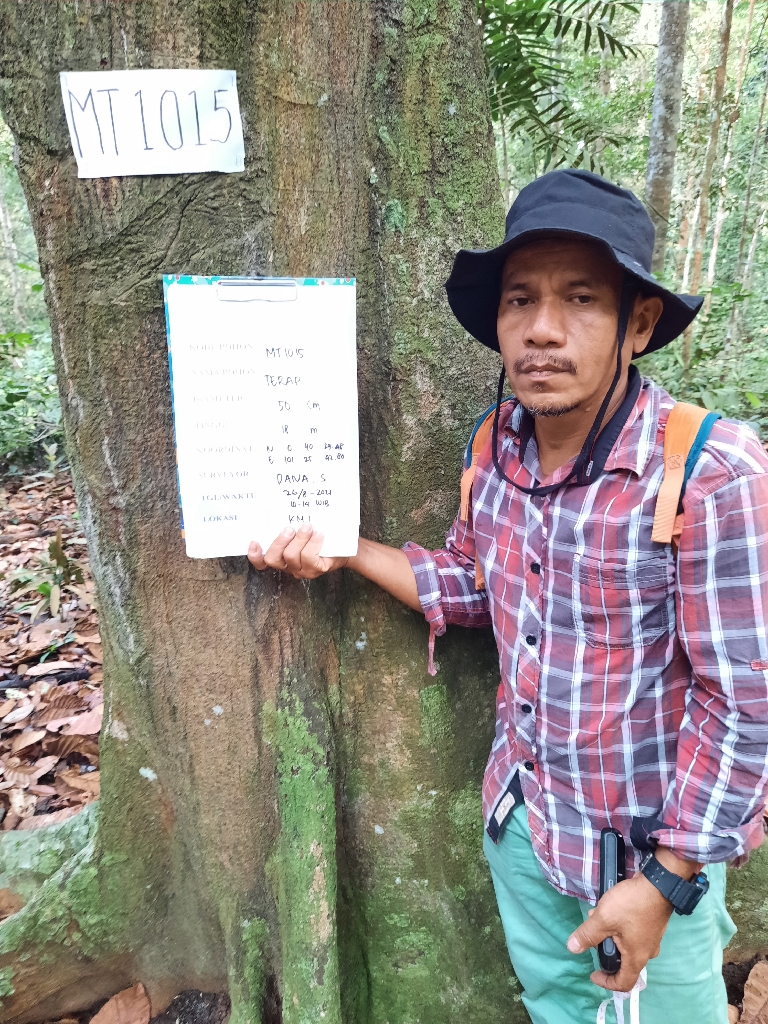 MT 1015
KODE POHON MT1015
NAMA POHON TERAP
DIAMETER 50 cm
TINGGI 18 m
KOORDINAT N 0 40
E 101 25 42.80
SURVEYOR DANA. S
TGL/WAKTU 26/8-2021
10-14 WIB
LOKASI KMI